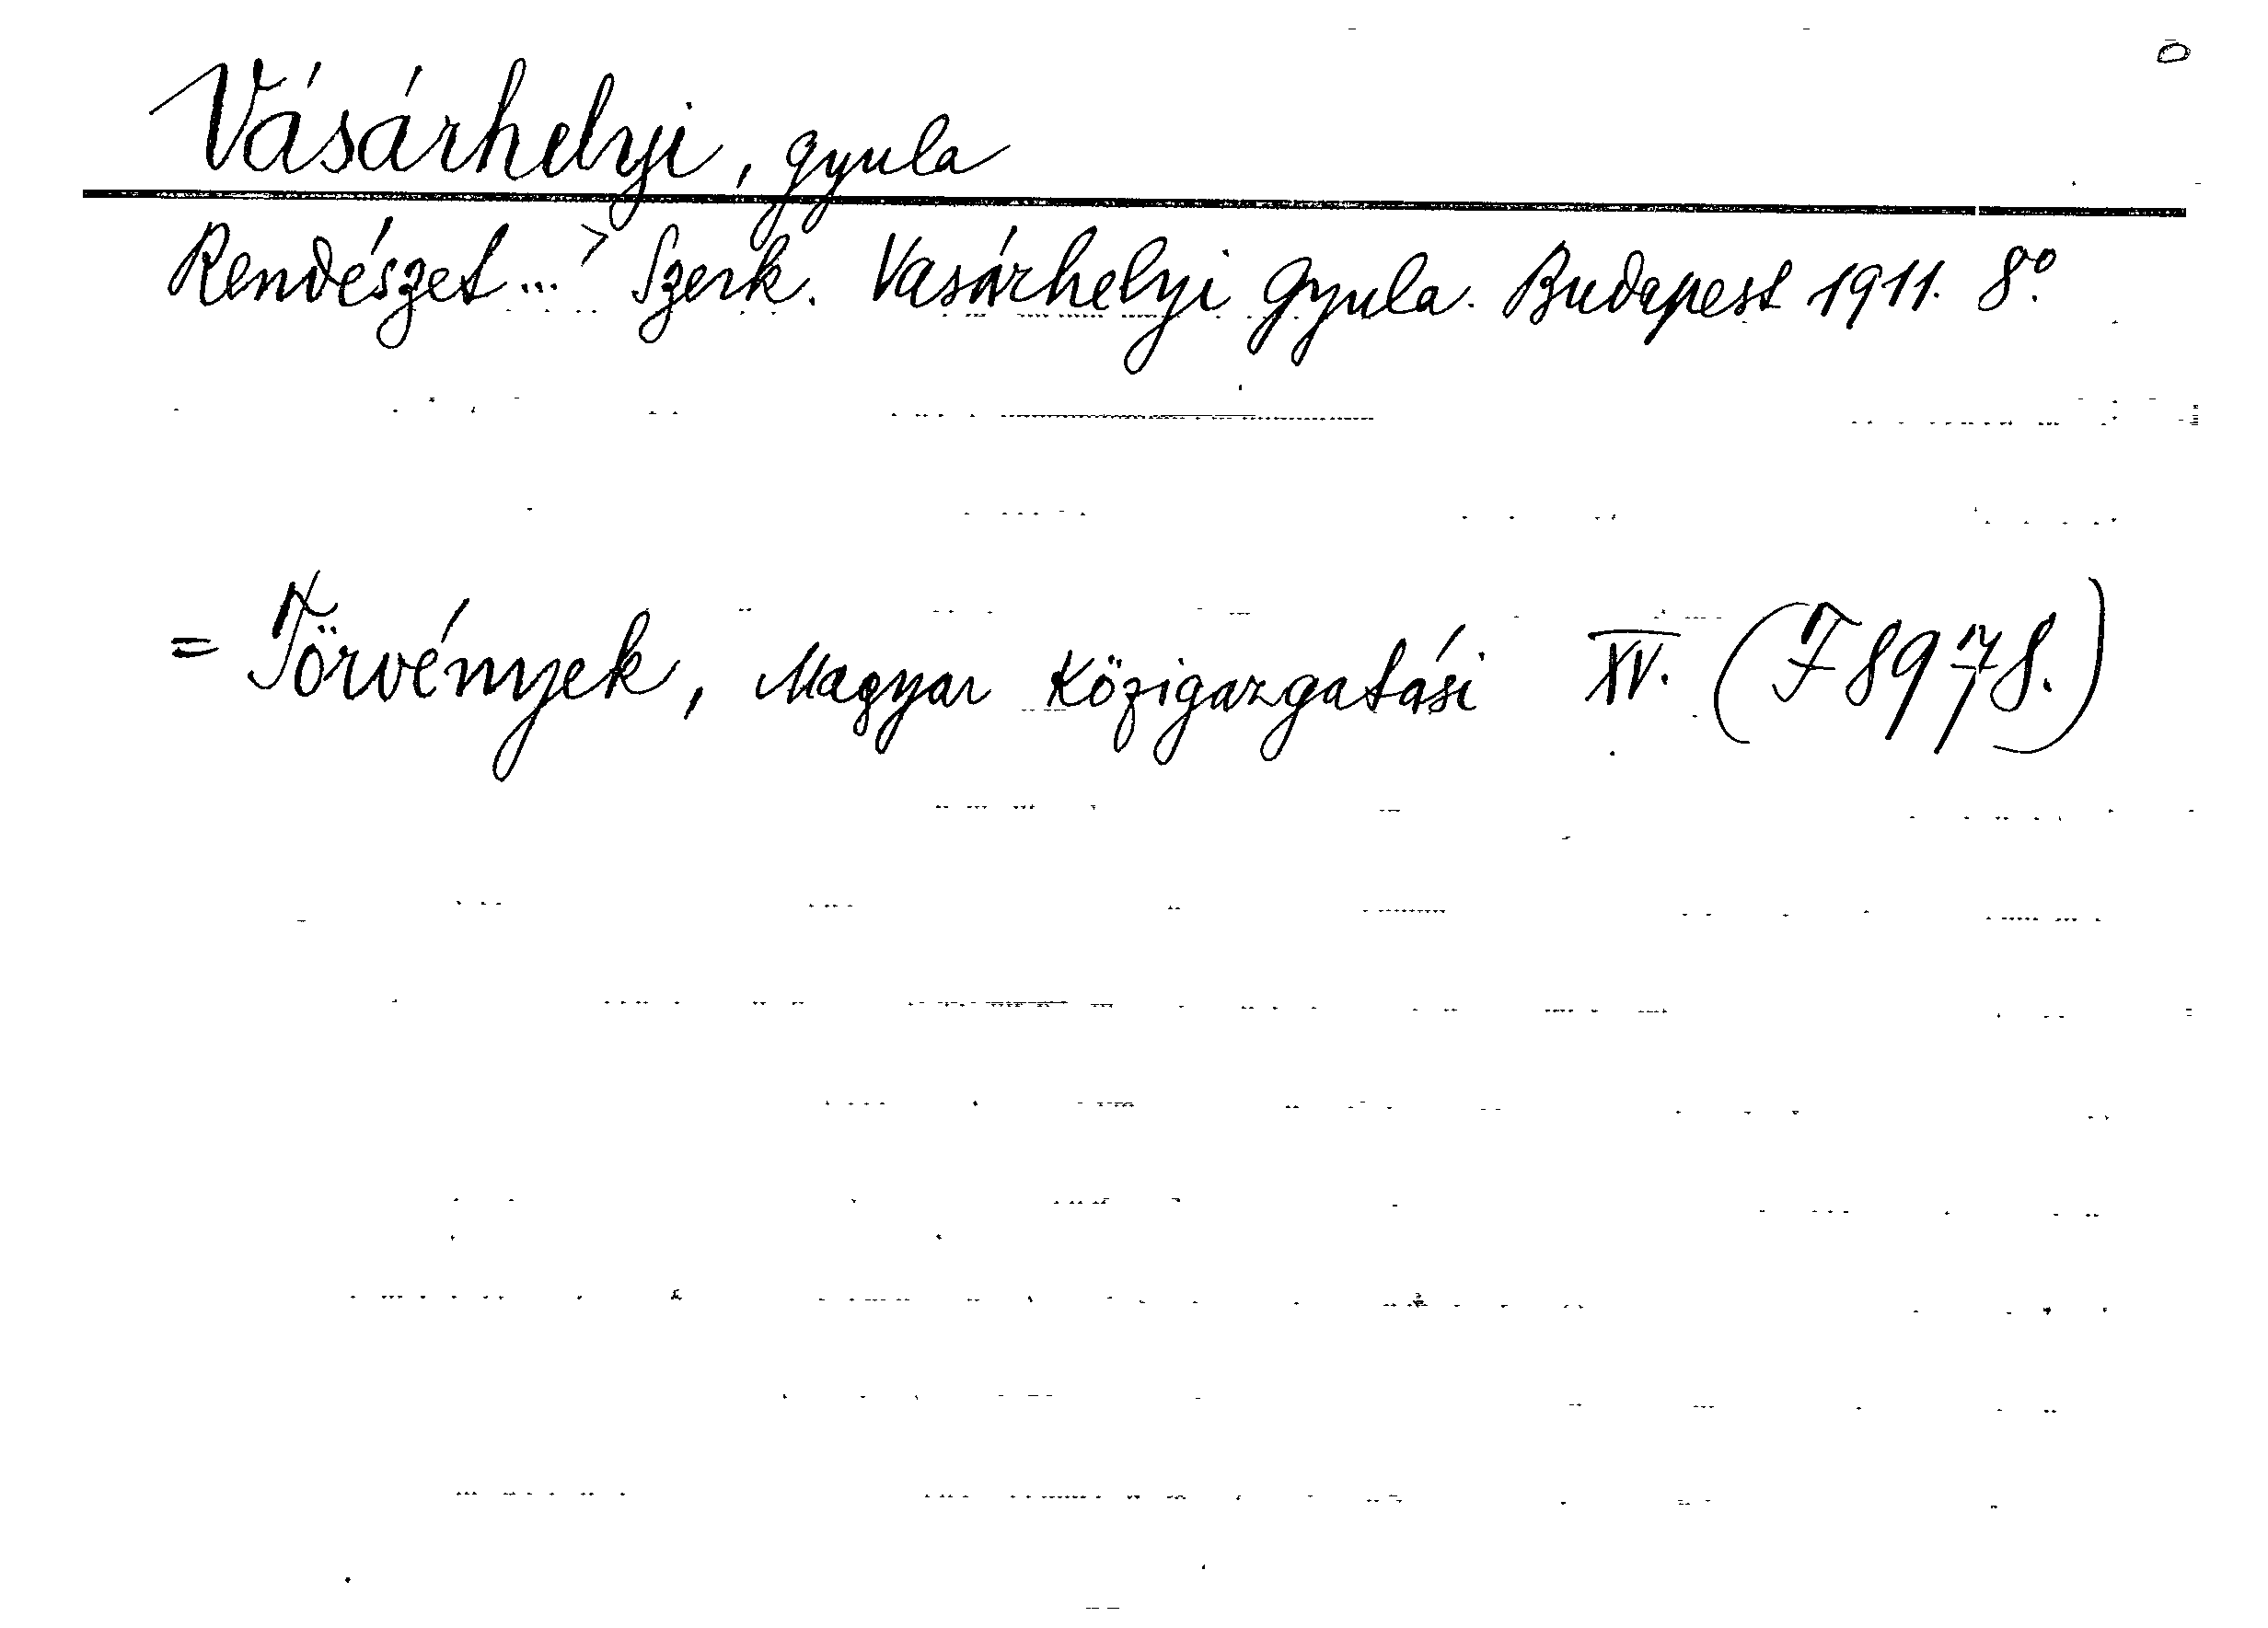 Vásárhelyi, Gyula
Rendészet... Szerk. Vasárhelyi Gyula. Budapest 1911. 8°.
= Törvények, Magyar Közigazgatási XV. (F 8978.)